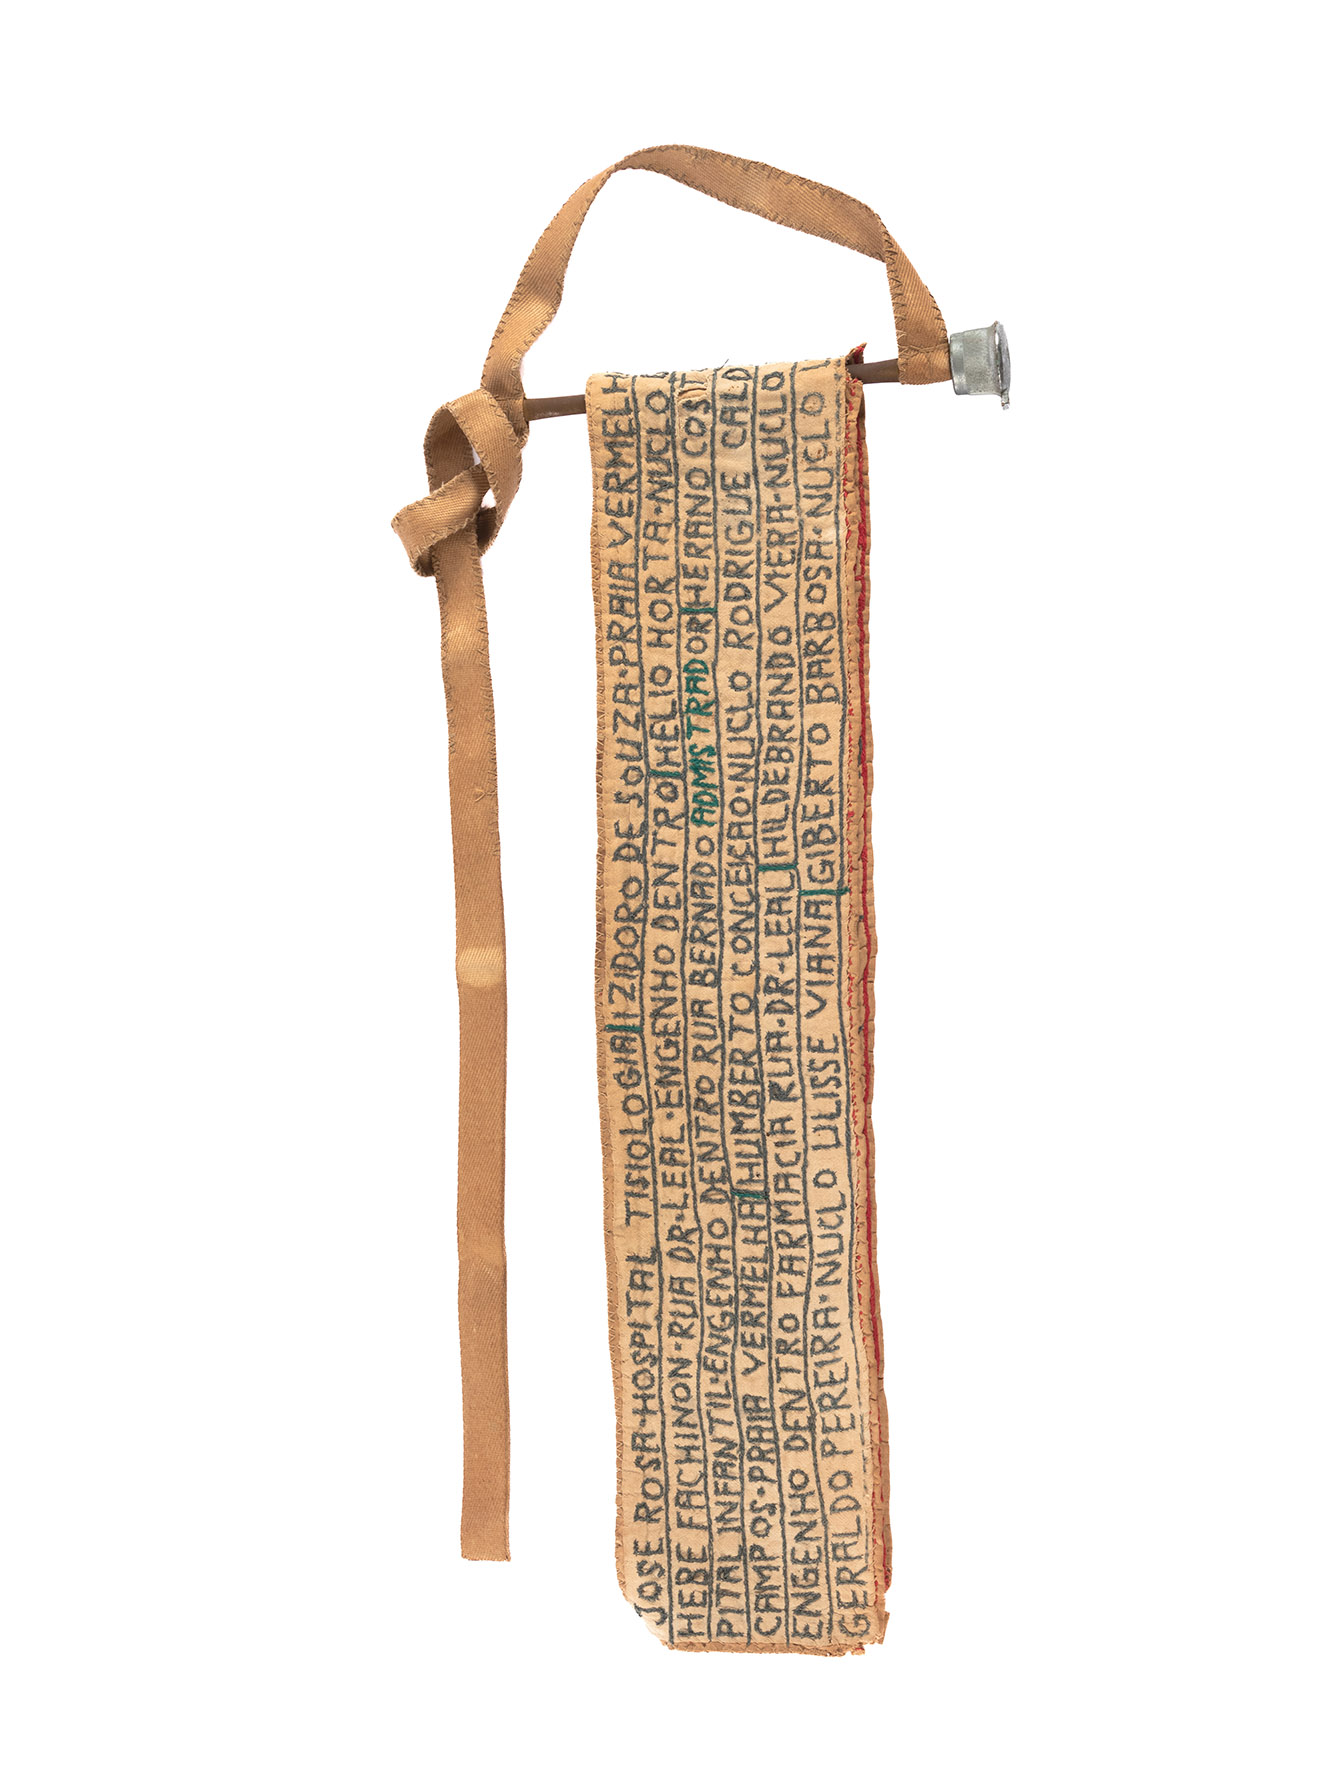 JOSE ROSA-HOSPITAL TISIOLOGIA IZIDORO DE SOUZA·PRAIA VERMELH
HEBE FACHINON·RUA DR·LEAL·ENGENHO DENTRO HELIO HORTA·NUCLO
PITAL INFANTIL·ENGENHO DENTRO RUA BERNADO ADMISTRADOR HERANO COST
CAMPOS·PRAIA VERMELHA HUMBERTO CONCEICAO·NUCLO RODRIGUE CALD
ENGENHO DENTRO FARMACIA RUA·DR·LEAL HILDEBRANDO VIERA·NUCLO
GERALDO PEREIRA·NUCLO ULISSE VIANA GIBERTO BARBOSA·NUCLO